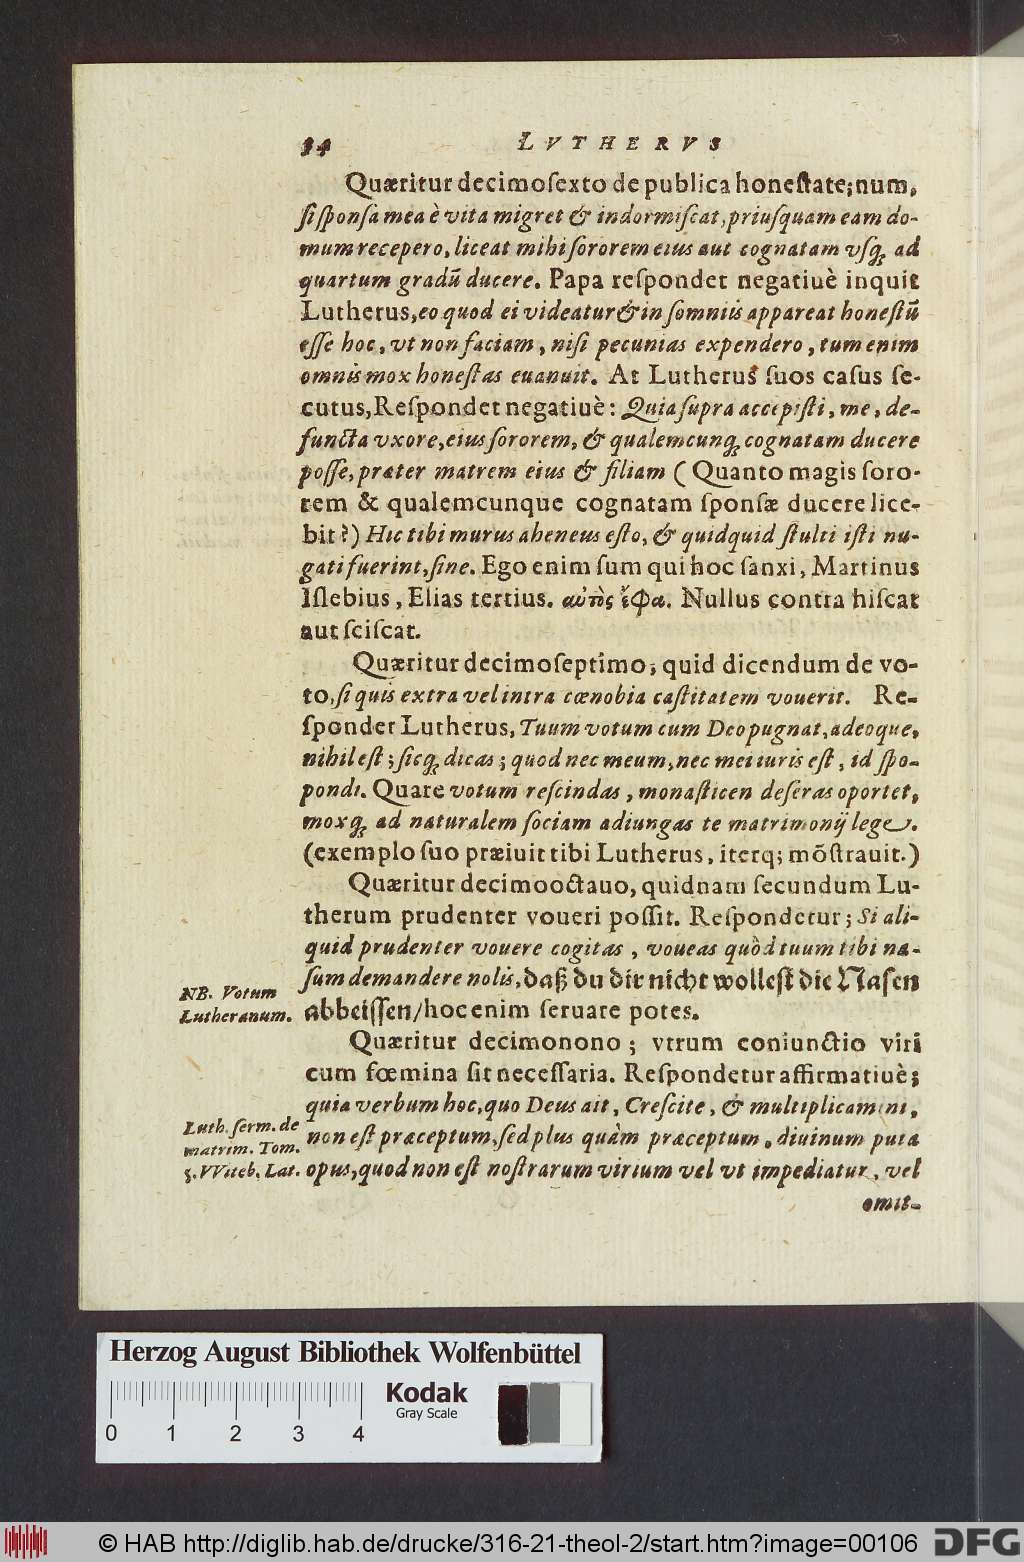 34 LVTHERVS
Quæritur decimosexto de publica honestate; num,
si sponsa mea è vita migret & indormiscat, priusquam eam do-
mum recepero, liceat mihi sororem eius aut cognatam vsq; ad
quartum gradũ ducere. Papa respondet negatiuè inquit
Lutherus, eo quod ei videatur & in somniis appareat honestũ
esse hoc, vt non faciam, nisi pecunias expendero, tum enim
omnis mox honestas euanuit. At Lutherus suos casus se-
cutus, Respondet negatiuè: Quia supra accepisti, me, de-
functa vxore, eius sororem, & qualemcunq; cognatam ducere
posse, præter matrem eius & filiam (Quanto magis soro-
rem & qualemcunque cognatam sponsæ ducere lice-
bit?) Hic tibi murus aheneus esto, & quidquid stulti isti nu-
gati fuerint, sine. Ego enim sum qui hoc sanxi, Martinus
Islebius, Elias tertius. αὐτὸς ἔφα. Nullus contra hiscat
aut sciscat.
Quæritur decimoseptimo; quid dicendum de vo-
to, si quis extra vel intra cœnobia castitatem vouerit. Re-
spondet Lutherus, Tuum votum cum Deo pugnat, adeoque,
nihil est; sicq; dicas; quod nec meum, nec mei iuris est, id spo-
pondi. Quare votum rescindas, monasticen deseras oportet,
moxq; ad naturalem sociam adiungas te matrimonij lege.
(exemplo suo præiuit tibi Lutherus, iterq; mõstrauit.)
Quæritur decimooctauo, quidnam secundum Lu-
therum prudenter voueri possit. Respondetur; Si ali-
quid prudenter vouere cogitas, voueas quòd tuum tibi na-
sum demandere nolis, daß du dir nicht wollest die Nasen
NB. Votum
Lutheranum.
abbeissen/ hoc enim seruare potes.
Quæritur decimonono; vtrum coniunctio viri
cum fœmina sit necessaria. Respondetur affirmatiuè;
quia verbum hoc, quo Deus ait, Crescite, & multiplicamini,
Luth. serm. de
matrim. Tom.
5. VViteb. Lat.
non est præceptum, sed plus quàm præceptum, diuinum puta
opus, quod non est nostrarum virium vel vt impediatur, vel
omit-
Herzog August Bibliothek Wolfenbüttel
Kodak
Gray Scale
0 1 2 3 4
© HAB http://diglib.hab.de/drucke/316-21-theol-2/start.htm?image=00106
DFG